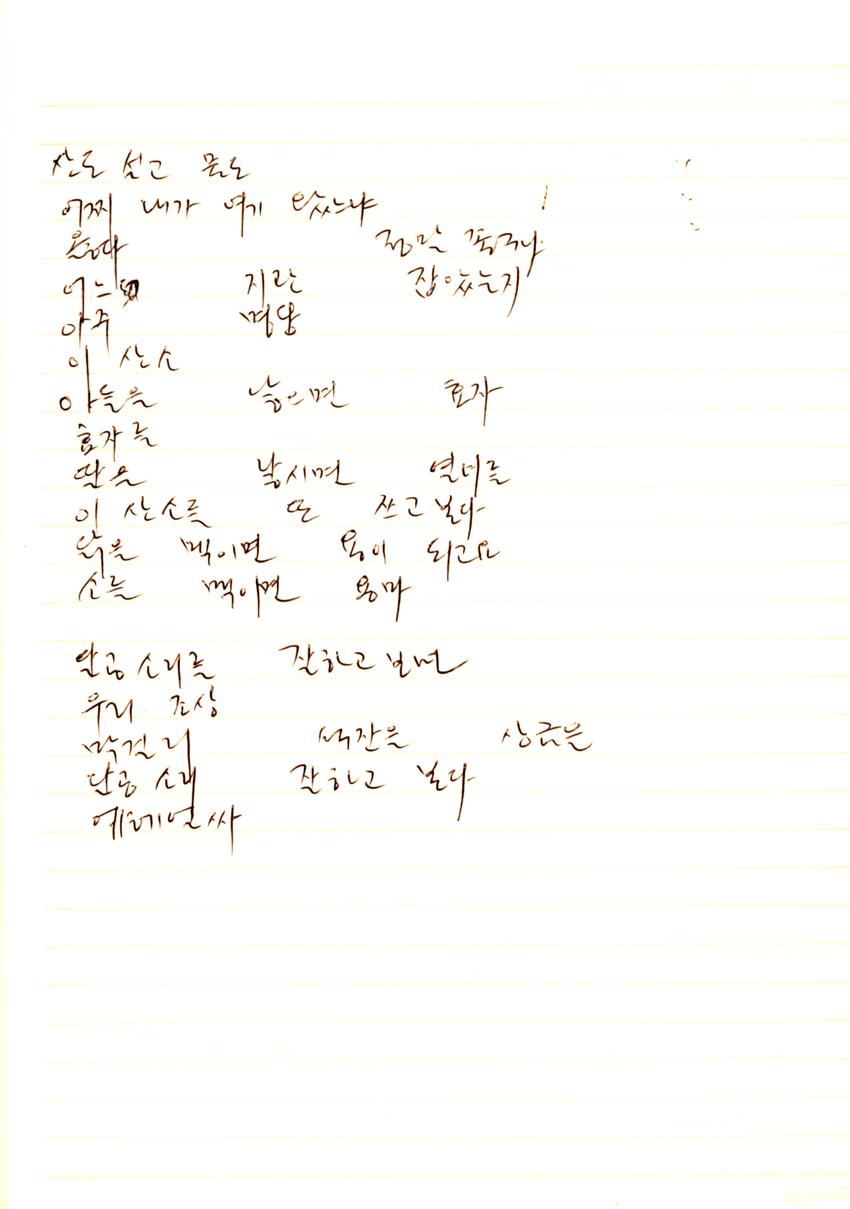 산도 설고 물도
어찌 내가 여기 왔느냐
온다 정말 좋구나
어느 지관 잡았는지
아주 명당
이 산소
아들을 낳으면 효자
효자를
딸은 낳시면 열녀를
이 산소를 또 쓰고 보다
닭을 멕이면 용이 되고요
소를 멕이면 용마
달공 소리를 잘하고 보면
우리 조상
막걸리 석잔을 상금을
단공 소래 잘하고 보다
에헤얼싸